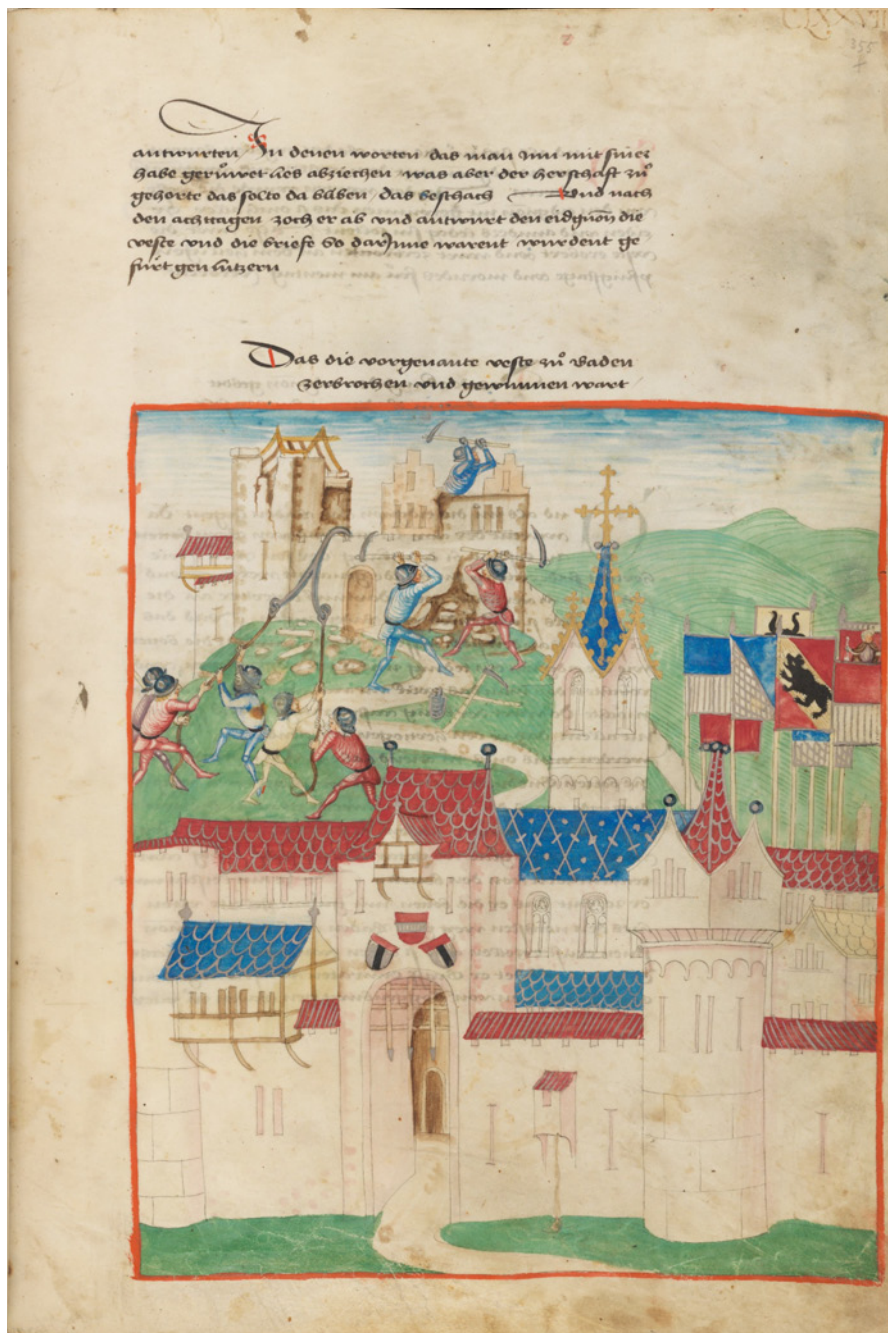 CLXXVII
355
antwurten / In denen worten das man inn mit siner
habe gerůwet lies abziechen was aber der herschaft zů
gehorte das solte da bliben / das beschach Und nach
den achttagen zoch er ab vnd antwurt den eidgnon̄ die
veste vnd die briefe so darinne warent wurdent ge
fůrt gen lutzern
Das die vorgenante veste zů Baden
zerbrochen vnd gewunnen wart